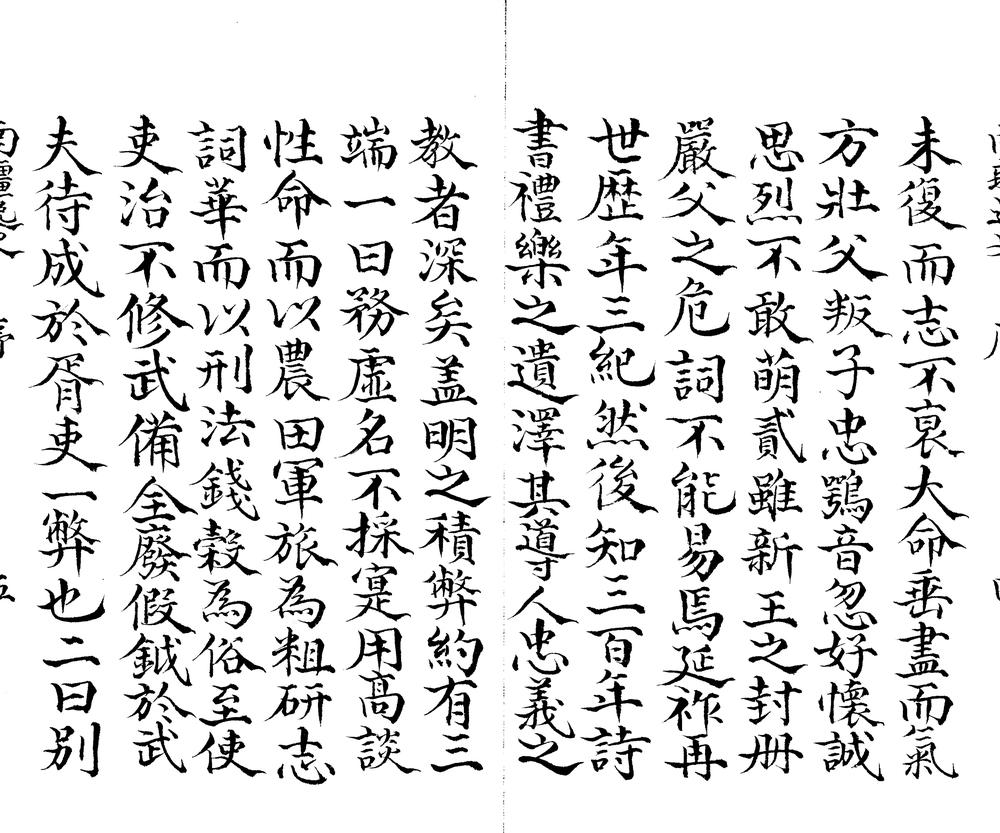 未復而志不衰大命垂盡而氣
方壯父叛子忠鶚音忽好懷誠
思烈不敢萌貳雖新王之封册
嚴父之危詞不能易焉延祚再
世歷年三紀然後知三百年詩
書禮樂之遺澤其導人忠義之
教者深矣盖明之積弊約有三
端一曰務虛名不採寔用高談
性命而以農田軍旅為粗研志
詞華而以刑法錢穀為俗至使
吏治不修武備全廢假鉞於武
夫待成於胥吏一弊也二曰別